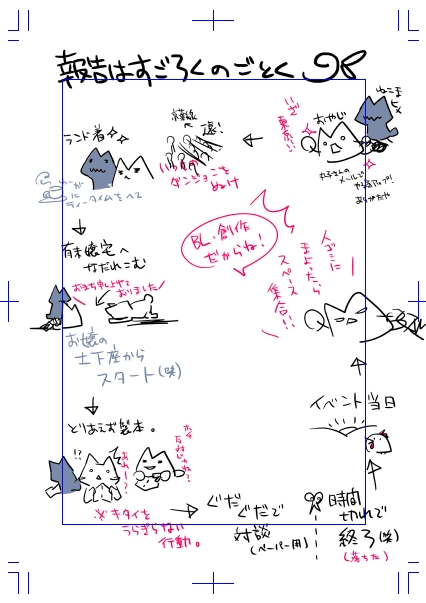 報告はすごろくのごとく
ねこま
ヒメ
おやじ
いざ
東京…
かるさんのメールで
やる気アップ!
ありがたや
遠!
いつものダンジョンを
ぬけ
ランド着
ティータイムをへて
有末嬢宅へ
なだれこむ
お待ち申し上げて
おりました
お嬢の
土下座から
スタート(笑)
とりあえず製本。
!?
※キタイを
うらぎらない
行動。
ぐだぐだで
対談
(ペーパー用)
時間
切れで
終了(笑)
(落ちた)
イベント当日
人ゴミに
まよったら
スペース
集合!!
BL・創作
だからね!